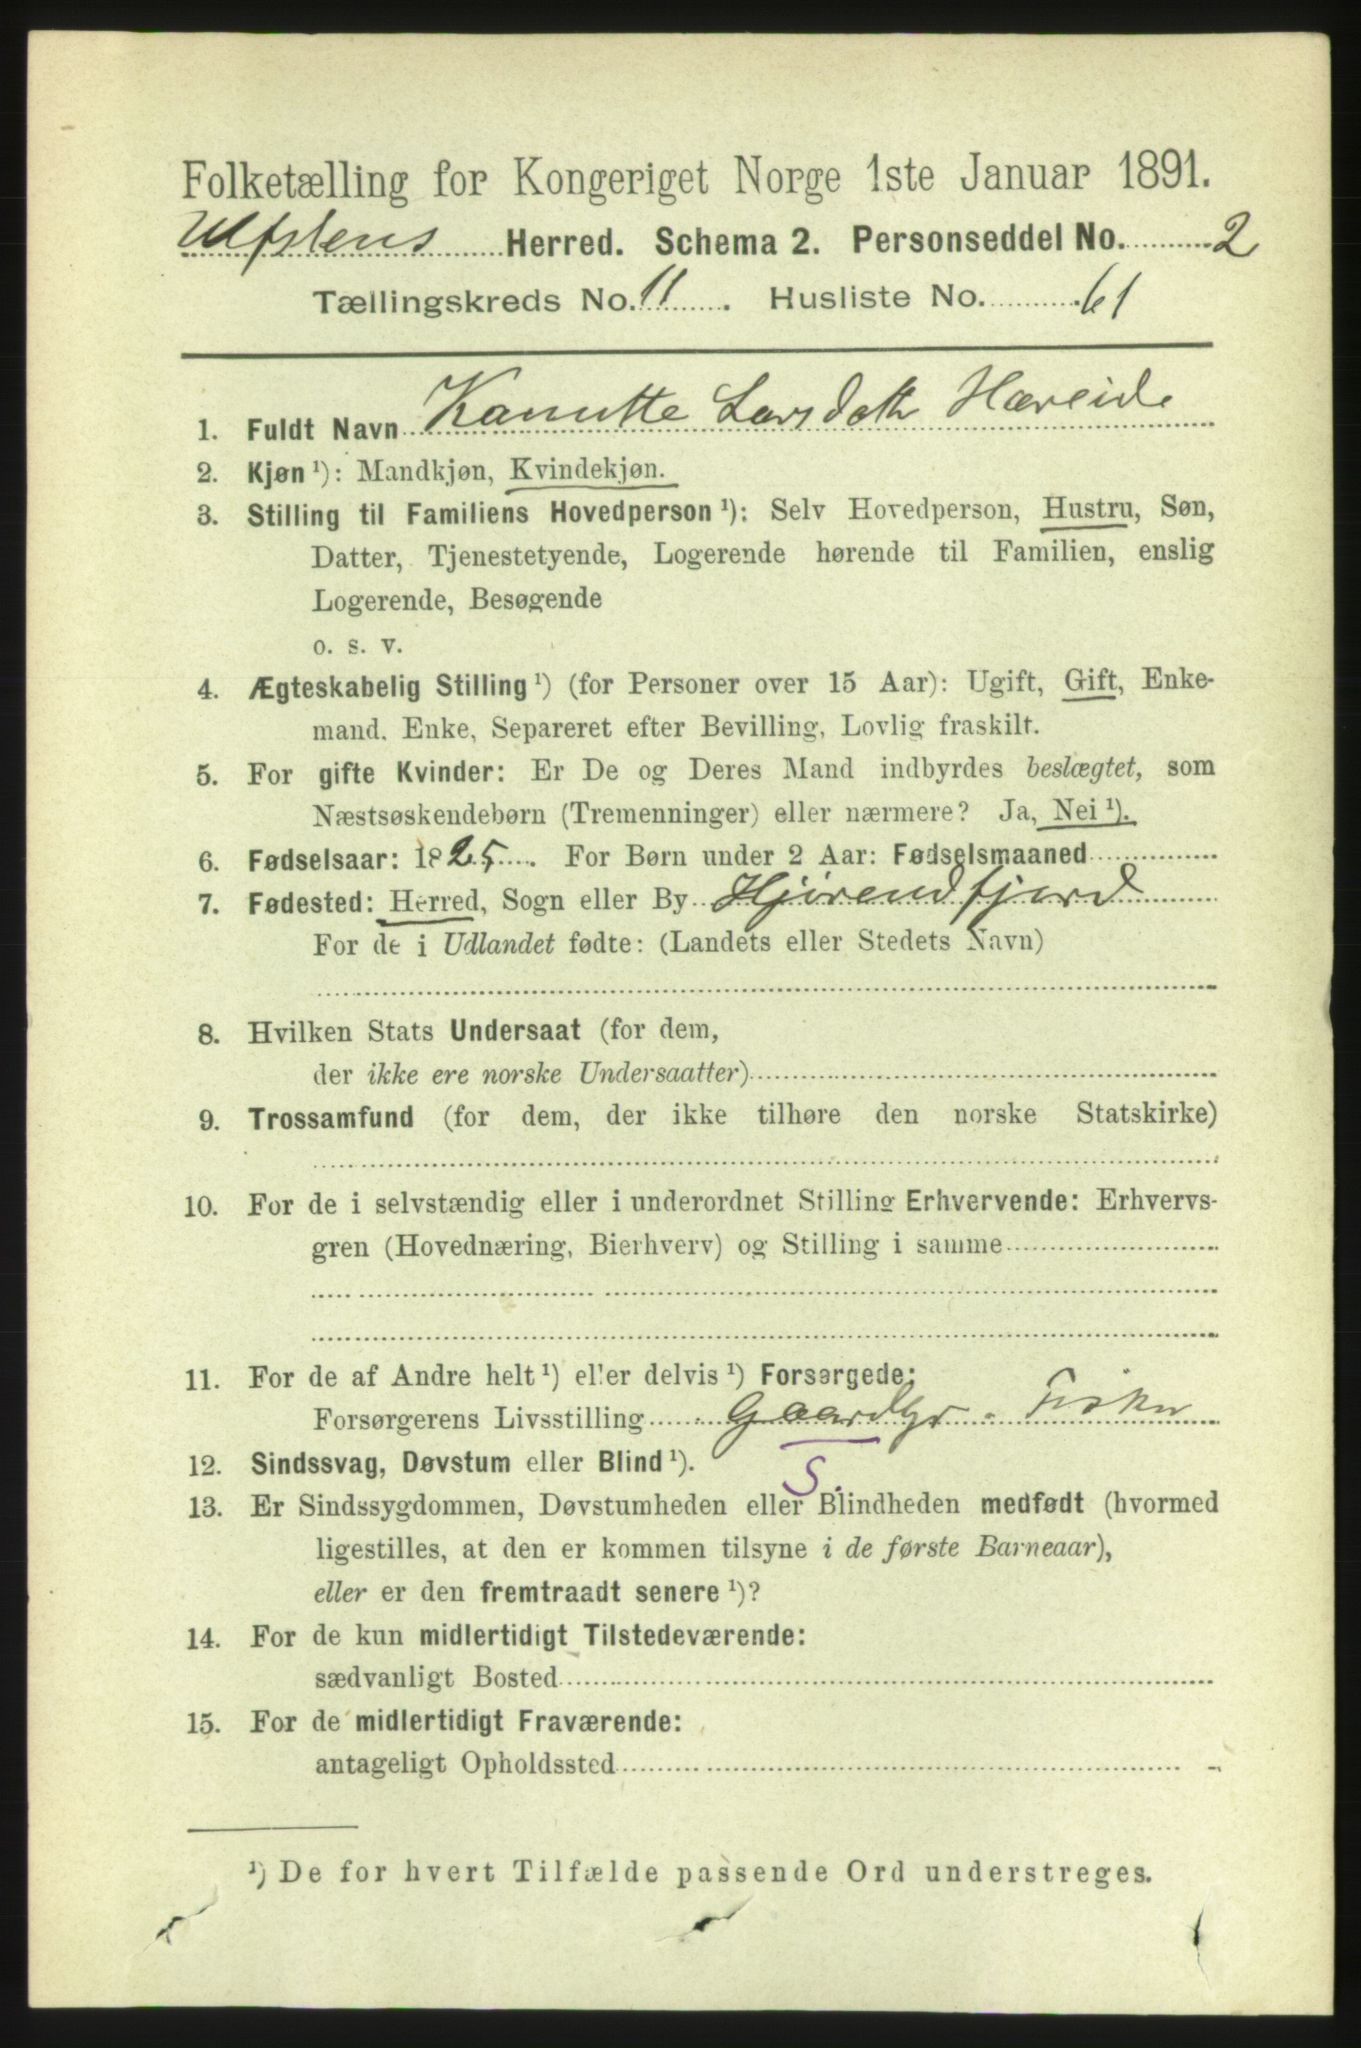 Folketælling for Kongeriget Norge 1ste Januar 1891.
Ulfstens Herred. Schema 2. Personseddel No. 2
Tællingskreds No. 11. Husliste No. 61
1. Fuldt Navn Kanutte Larsdatr Hareide
2. Kjøn ¹): Mandkjøn, Kvindekjøn.
3. Stilling til Familiens Hovedperson ¹): Selv Hovedperson, Hustru, Søn,
Datter, Tjenestetyende, Logerende hørende til Familien, enslig
Logerende, Besøgende
o. s. v.
4. Ægteskabelig Stilling ¹) (for Personer over 15 Aar): Ugift, Gift, Enke-
mand, Enke, Separeret efter Bevilling, Lovlig fraskilt.
5. For gifte Kvinder: Er De og Deres Mand indbyrdes beslægtet, som
Næstsøskendebørn (Tremenninger) eller nærmere? Ja, Nei ¹).
6. Fødselsaar: 1825. For Børn under 2 Aar: Fødselsmaaned
7. Fødested: Herred, Sogn eller By Hjörendfjord
For de i Udlandet fødte: (Landets eller Stedets Navn)
8. Hvilken Stats Undersaat (for dem,
der ikke ere norske Undersaatter)
9. Trossamfund (for dem, der ikke tilhøre den norske Statskirke)
10. For de i selvstændig eller i underordnet Stilling Erhvervende: Erhvervs-
gren (Hovednæring, Bierhverv) og Stilling i samme
11. For de af Andre helt ¹) eller delvis ¹) Forsørgede:
Forsørgerens Livsstilling Gaardbr. Fisker
12. Sindssvag, Døvstum eller Blind ¹).
S.
13. Er Sindssygdommen, Døvstumheden eller Blindheden medfødt (hvormed
ligestilles, at den er kommen tilsyne i de første Barneaar),
eller er den fremtraadt senere ¹)?
14. For de kun midlertidigt Tilstedeværende:
sædvanligt Bosted
15. For de midlertidigt Fraværende:
antageligt Opholdssted
¹) De for hvert Tilfælde passende Ord understreges.